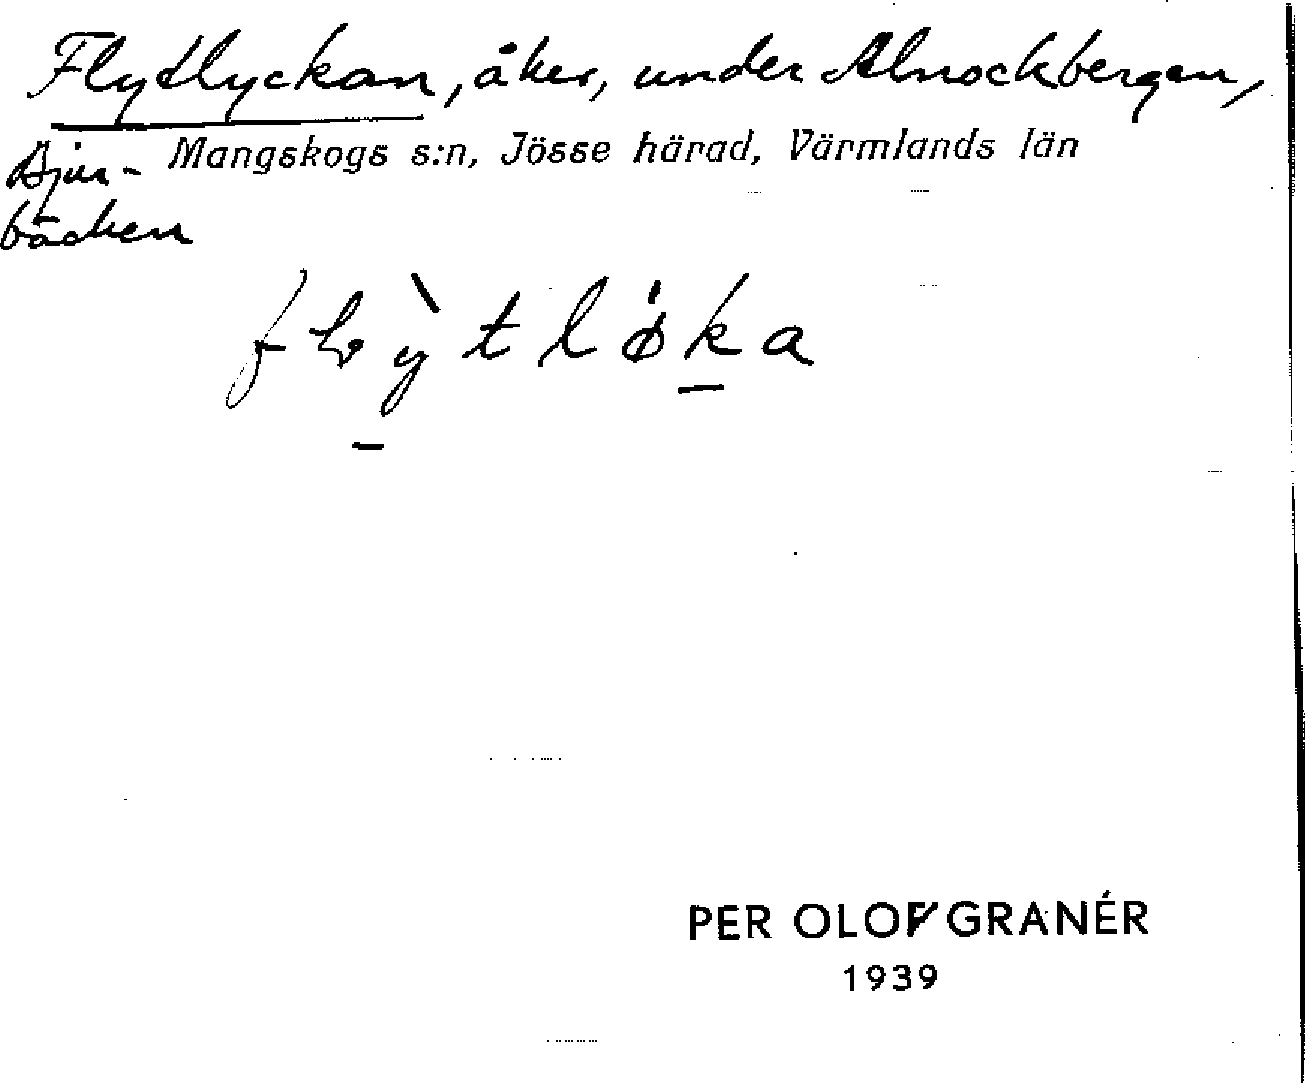 Flytlyckan, åker, under Alnockbergen,
Mangskogs s:n, Jösse härad, Värmlands län
Djur-
bäcken
flỳtløka
PER OLOF GRANÉR
1939